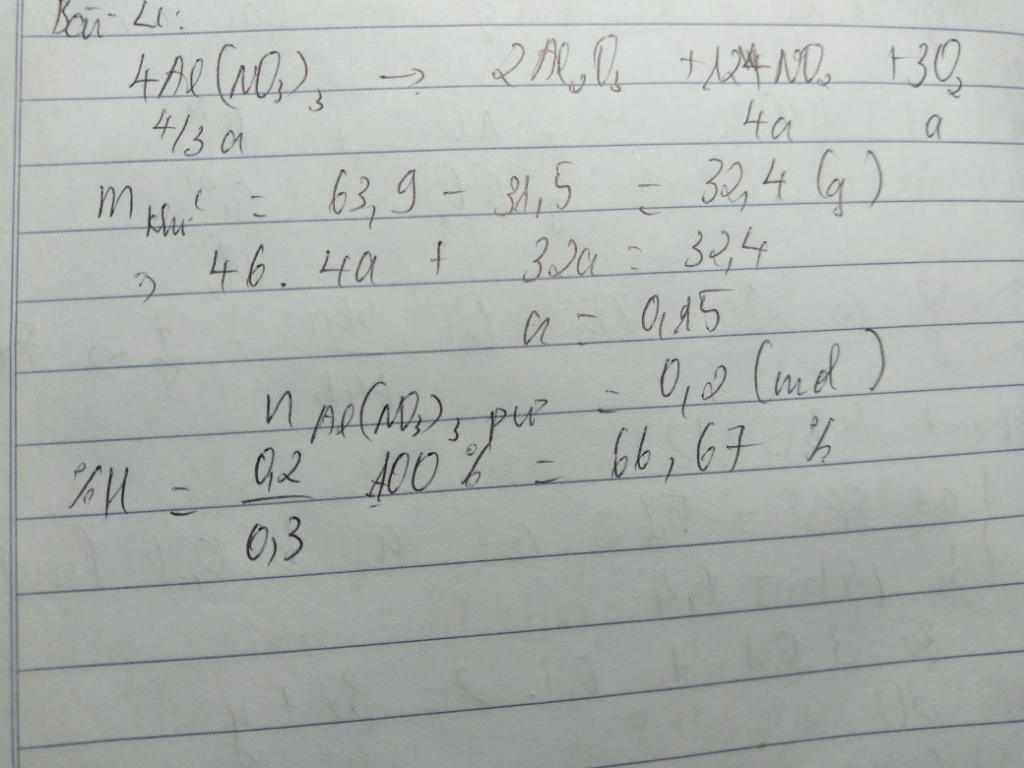 Bài 4:
4Al(NO3)3 → 2Al2O3 + 12NO2 + 3O2
4/3 a 4a a
m khí = 63,9 - 31,5 = 32,4 (g)
=> 46. 4a + 32a = 32,4
a = 0,15
n Al(NO3)3 pư = 0,2 (mol)
%H = 0,2/0,3 100% = 66,67 %